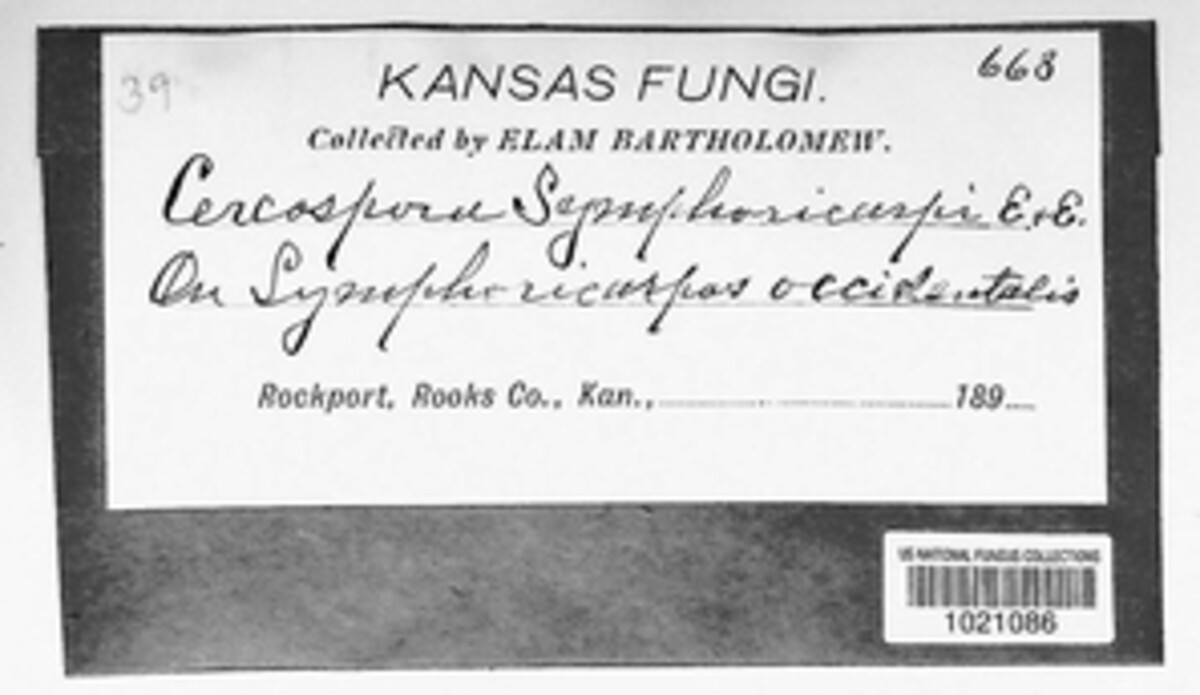 39
668
KANSAS FUNGI.
Collected by ELAM BARTHOLOMEW.
Cercospora Symphoricarpi E. & E.
On Symphoricarpos occidentalis
Rockport, Rooks Co., Kan., 189
US NATIONAL FUNGUS COLLECTIONS
1021086